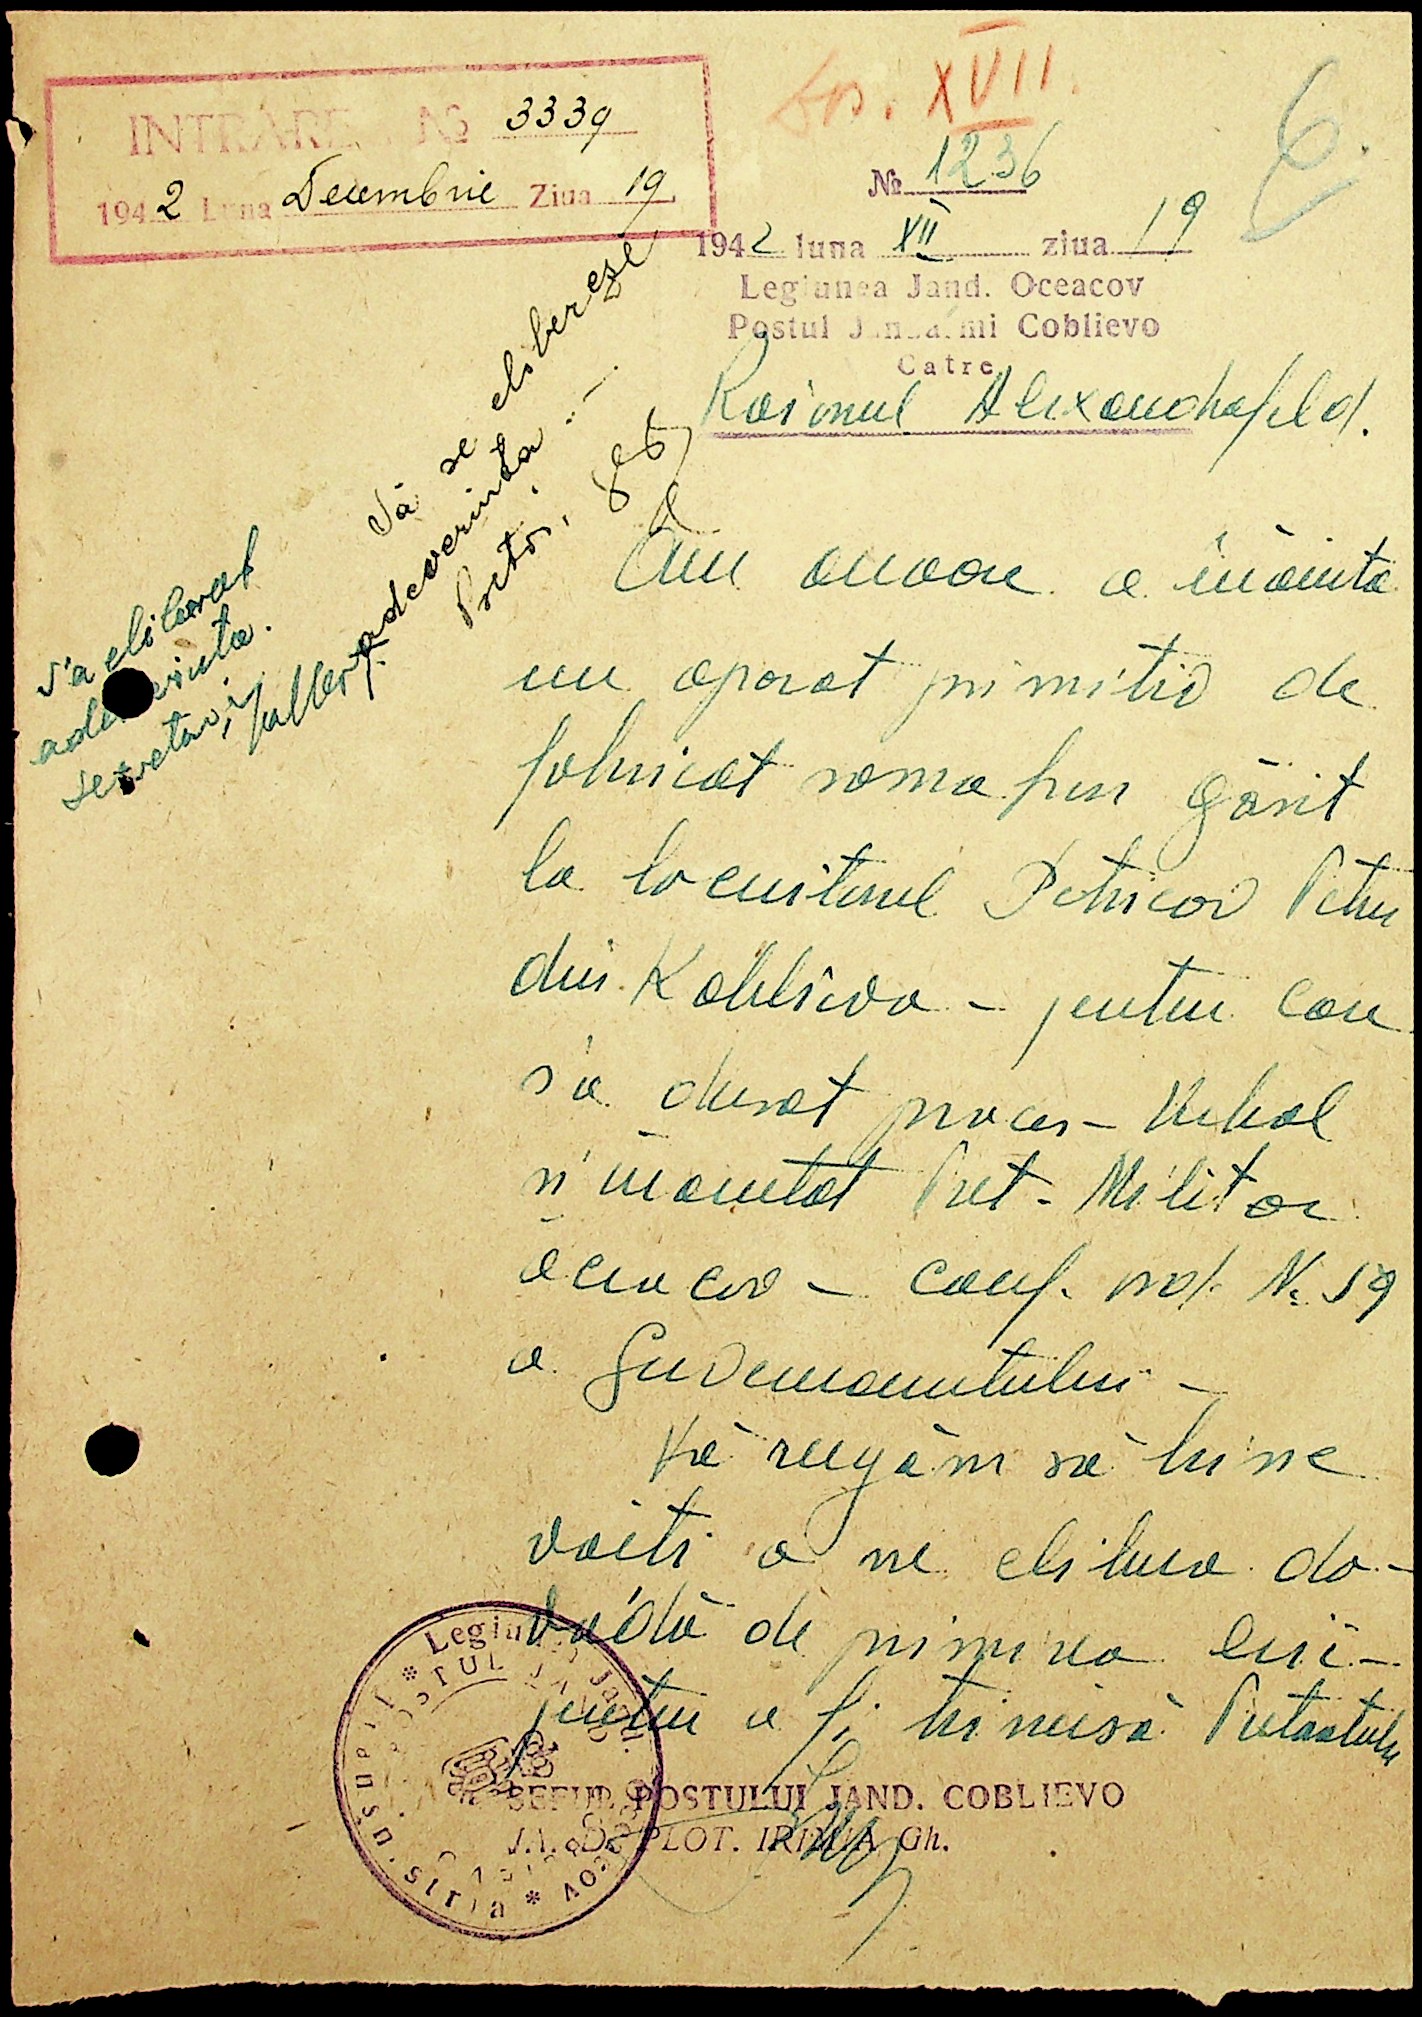 INTRARE No 3339
1942 Luna Decembrie Ziua 19
Dos. XVII.
6.
No 1236
1942 luna XII ziua 19
Legiunea Jand. Oceacov
Postul Jandarmi Coblievo
Catre
Raionul Alexandrafeld.
Să se elibereze
adeverința.
Pretor,
S'a eliberat
adeverința.
secretar,
Am onoare a înainta
un aparat primitiv de
fabricat samahon găsit
la locuitorul Petricov Petru
din Koblievo - pentru care
s'a dresat proces-verbal
și înaintat Pret. Militar
Oceacov - conf. ord. No 59
a Guvernamântului -
Vă rugăm să bine
voiți a ne elibera do-
vadă de primirea lui -
pentru a fi trimisă Pretoratului
SEFUL POSTULUI JAND. COBLIEVO
PLOT. IRIMIA Gh.
Legiunea Jand. Oceacov * Transnistria *
POSTUL JAND.